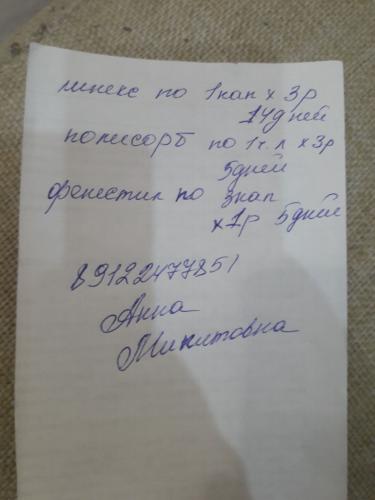 линекс по 1кап х 3р
14дней
полисорб по 1ч.л х 3р
5дней
фенистил по 3кап
х1р 5дней
89122477851
Анна
Микитовна